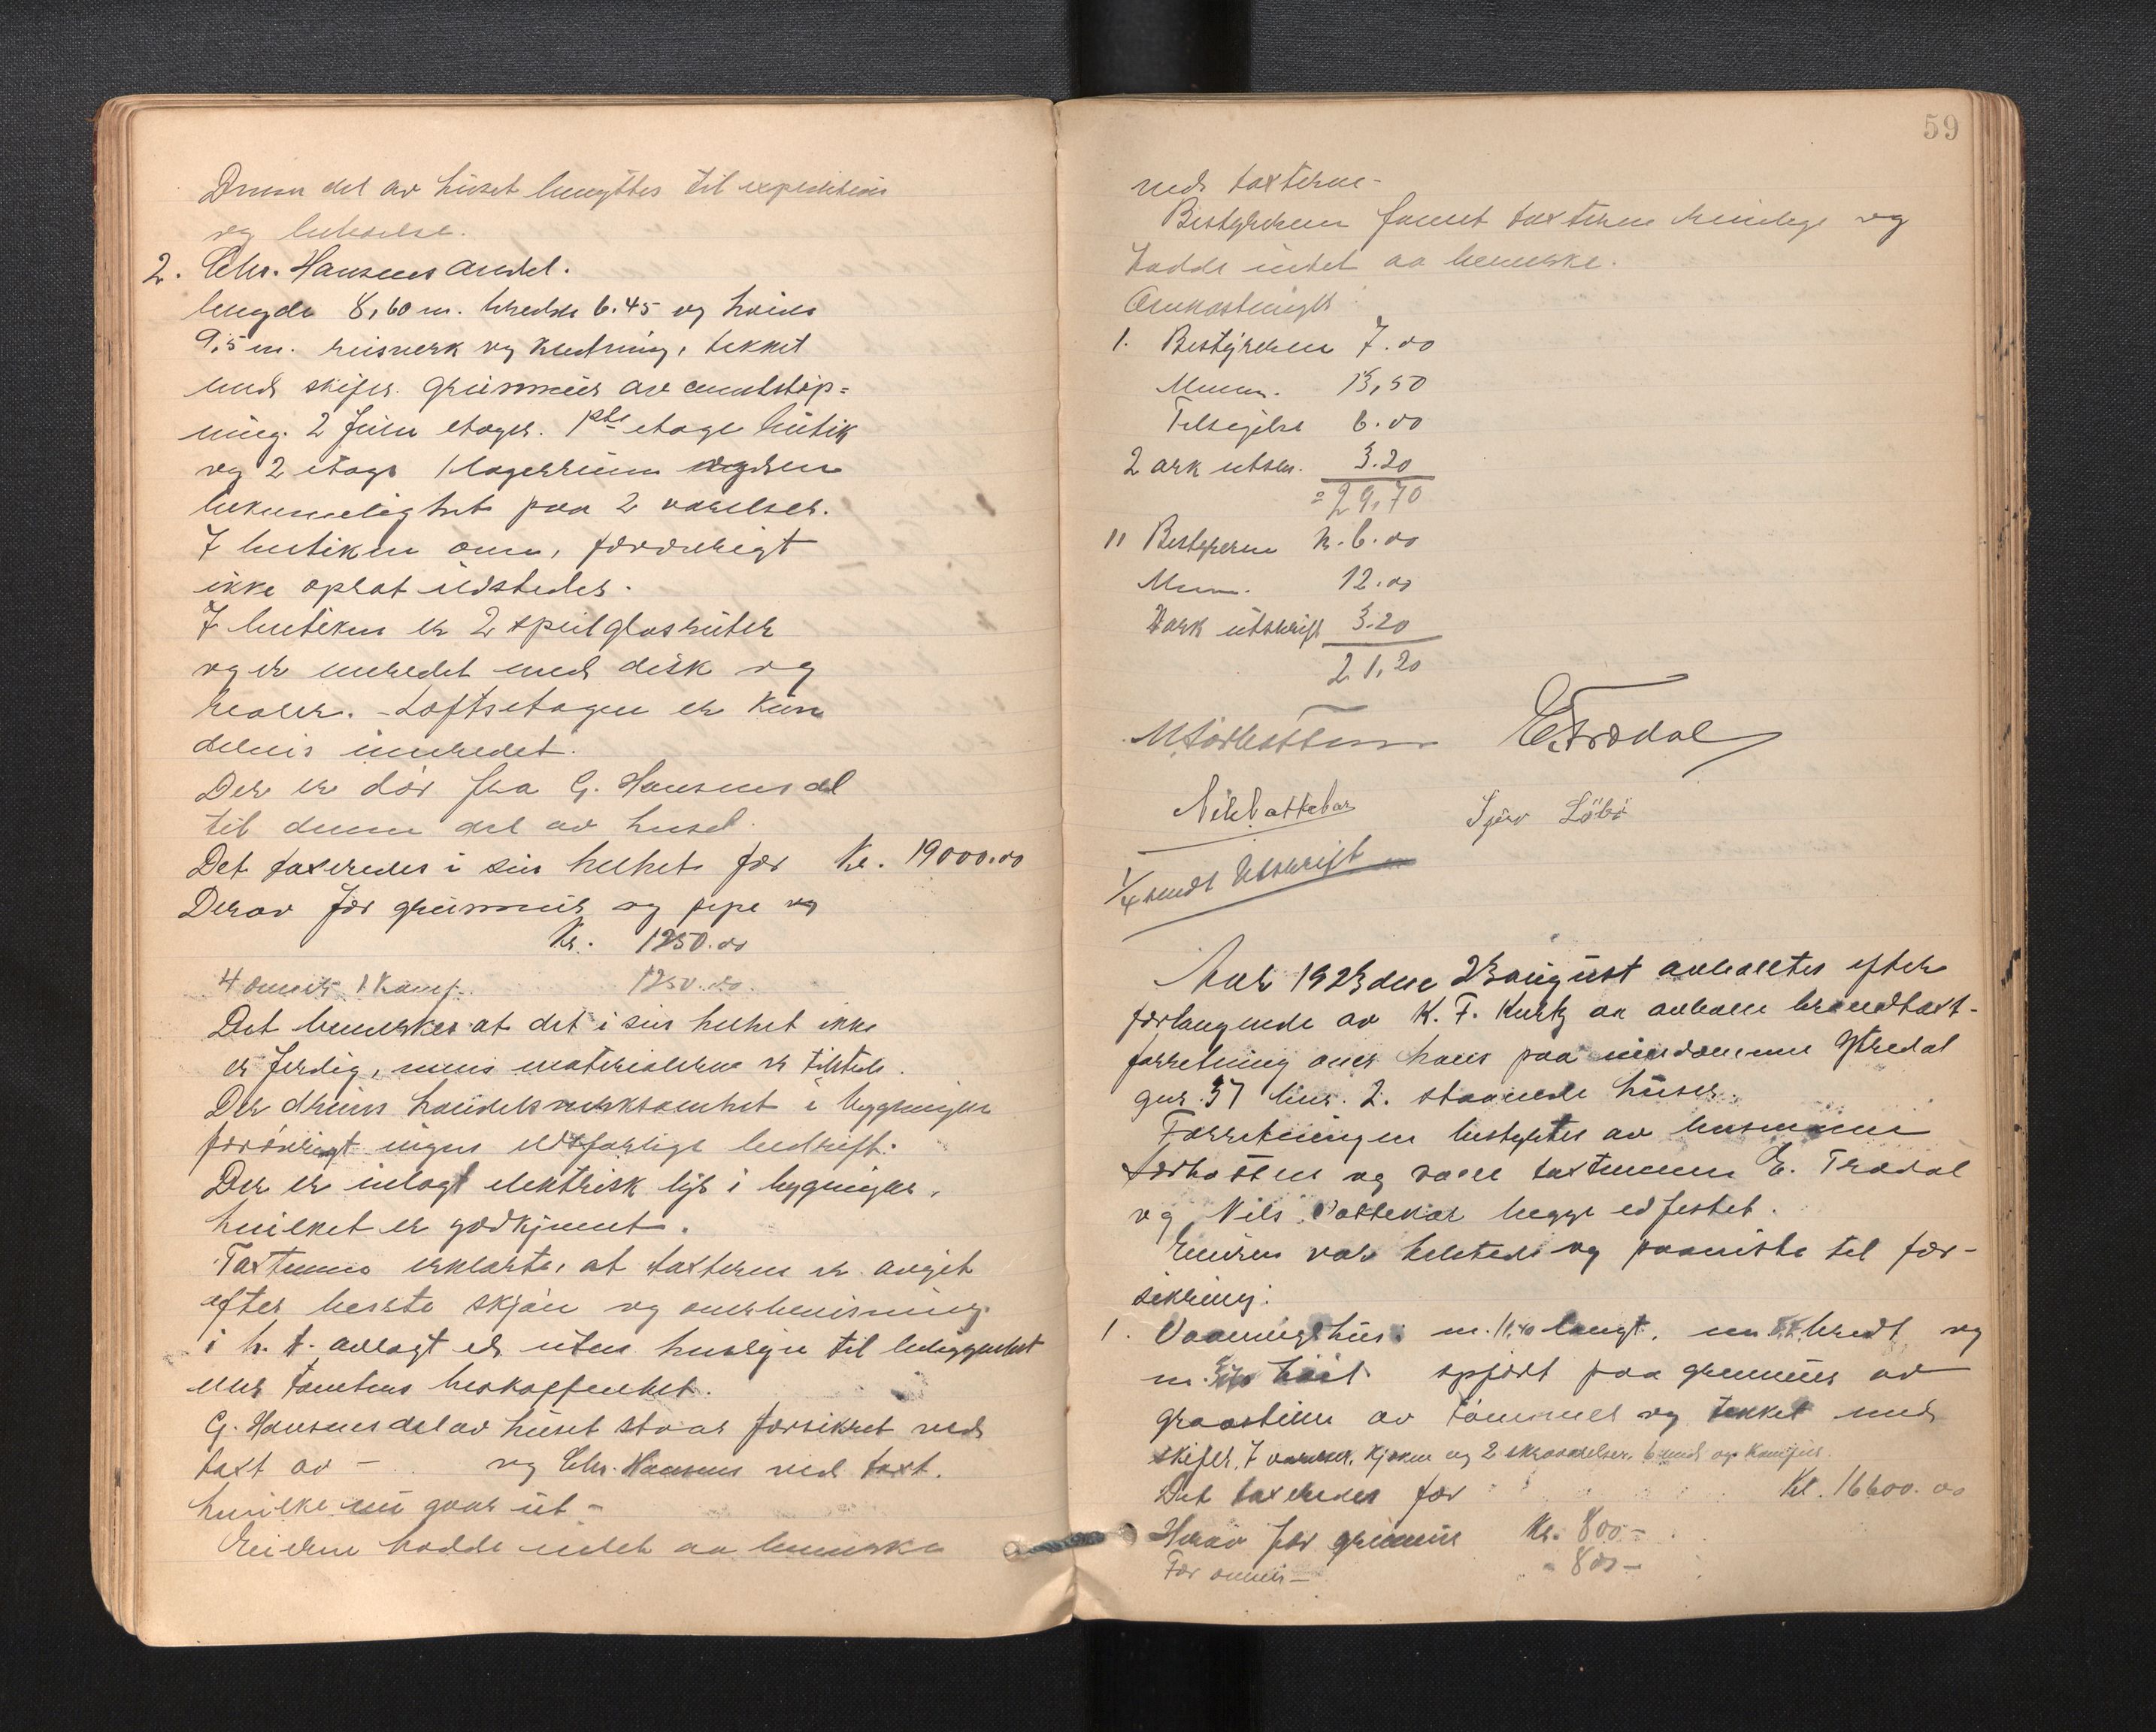 Denne del av huset benyttes til expedition
og beboelse.
2. Chr. Hansens andel.
lengde 8,60 m. bredde 6.45 og høide
9,5 m. reisverk og kledning, tekket
med skifer. Grunmur av cementstøp=
ning. 2 fulle etager. 1ste etage butik
og 2 etage 1 lagerrum
bekvemelighet paa 2 værelser.
I butiken ovn, forøvrigt
ikke oplat ildsteder.
I butiken er 2 speilglasruter
og er inredet med disk og
reoler. - Loftsetagen er kun
delvis inredet.
Der er dør fra G. Hansens del
til denne del av huset.
Det taxeredes i sin helhet for Kr. 19000.00
Derav for grunmur og pipe og
Kr. 1250.00
4 ovner 1 Komf. 1250.00.
Det bemerkes at det i sin helhet ikke
er ferdig, mens materialerne er tilstede.
Der drives handelsverksomhet i bygningen
forøvrigt ingen ildsfarlige bedrift.
Der er inlagt elektrisk lys i bygningen,
hvilket er godkjennt.
Taxtmenn erklærte, at taxterne er avgit
efter beste skjøn og overbevisning
i h. t. avlagt ed uten hensyn til beliggenhet
eller tomtens beskaffenhet.
G. Hansens del av huset staar forsikret ved
taxt av - og Chr. Hansens ved taxt.
hvilke nu gaar ut -
Eierne hadde intet aa bemerke
59
ved taxterne -
Bestyreren fannt taxterne rimelige og
hadde intet aa bemerke.
Omkostninger
1. Bestyreren 7.00
Menn. 13,50
Tilsigelse 6.00
2 ark utskr. 3.20
= 29,70
11 Bestyreren kr. 6.00
Menn. 12.00
2 ark utskrift 3.20
21,20
MFørbotten E. Trædal
Nils Vattekar Sjur Löbö
1/4 sendt Utskrift
Aar 1923 den 23 august avholltes efter
forlangende av K. F. Kurtz aa avholle brandtaxt-
forretning over hans paa eiendommen Ytredal
gnr. 37 bnr. 2. staaende huser.
Forretningen bestyrtes av lensmann
Førbotten og var taxtmenn E. Trædal
og Nils Vattekar begge edfestet.
Eieren var tilstede og paaviste til for-
sikring:
1. Vaaningshus: m. 11,40 langt, m bredt og
m. høit. opført paa grunmur av
graasten av tømmer og tekket med
skifer, 7 værelser, kjøken og 2 skraaværelser, 6 ovner og Komfur.
Det taxeredes for Kr. 16600.00
Herav for grunmur Kr. 800 -
For ovner - " 800 -